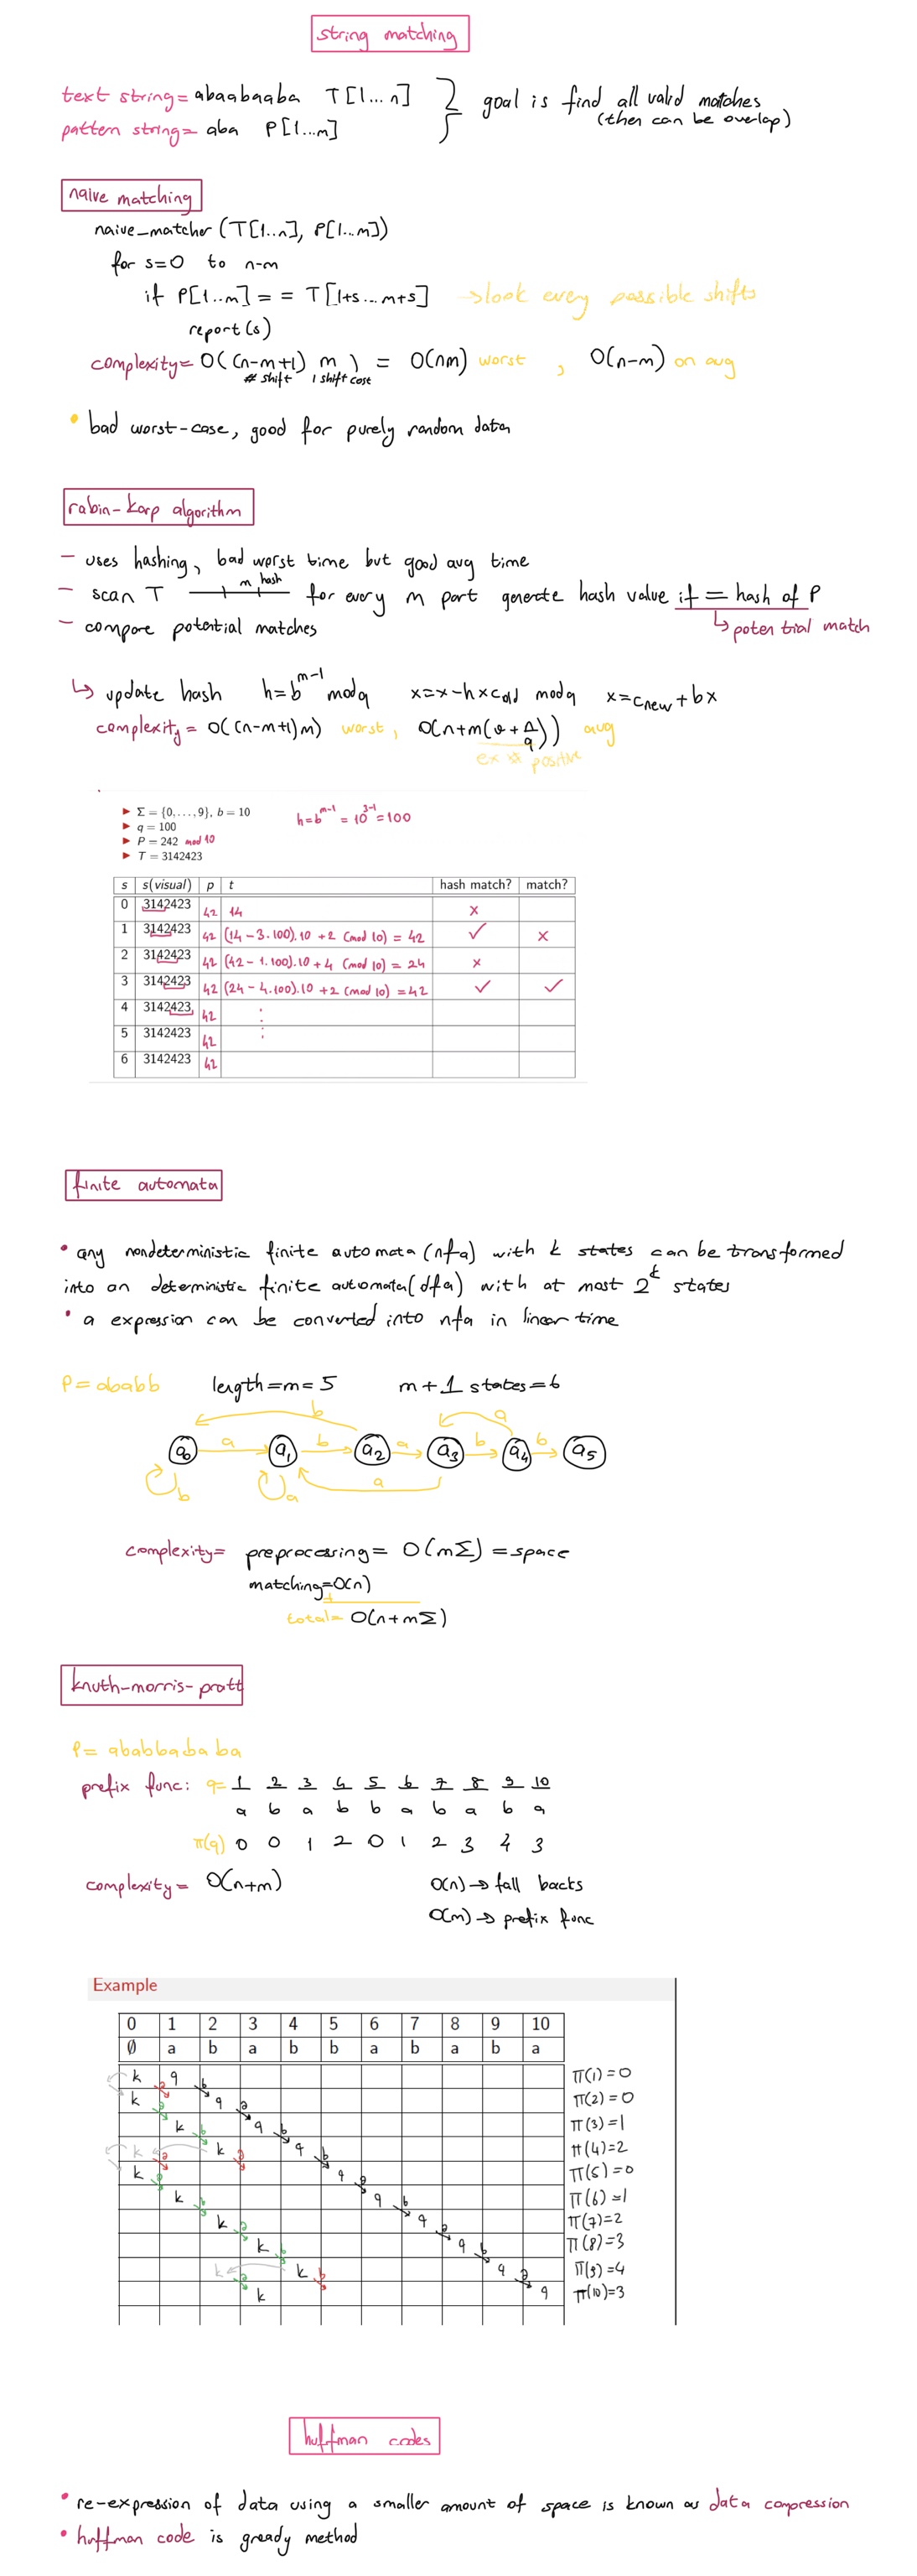 string matching
text string= abaabaaba T[1...n] } goal is find all valid matches
pattern string= aba P[1...m] (then can be overlap)
naive matching
naive_matcher (T[1..n], P[1...m])
for s=0 to n-m
if P[1..m] == T[1+s...m+s] → look every possible shifts
report(s)
complexity= O((n-m+1) m) = O(nm) worst , O(n-m) on avg
# shift 1 shift cost
• bad worst-case, good for purely random data
rabin-karp algorithm
- uses hashing, bad worst time but good avg time
m hash
- scan T for every m part generate hash value if = hash of P
- compare potential matches
↳ poten trial match
↳ update hash h=b^m-1 mod q x=x-h×cold mod q x=cnew+bx
complexity= O((n-m+1)m) worst, O(n+m(v+n/q)) avg
ex # positive
► Σ = {0,...,9}, b = 10 h=b^m-1 = 10^3-1 = 100
► q = 100
► P = 242 mod 10
► T = 3142423
s s(visual) p t hash match? match?
0 3142423 42 14 x
1 3142423 42 (14-3.100).10+2 (mod 10) = 42 ✓ x
2 3142423 42 (42-1.100).10+4 (mod 10) = 24 x
3 3142423 42 (24-4.100).10+2 (mod 10) = 42 ✓ ✓
4 3142423 42 :
5 3142423 42 :
6 3142423 42
finite automata
• any nondeterministic finite automata (nfa) with k states can be transformed
into an deterministic finite automata(dfa) with at most 2^k states
• a expression can be converted into nfa in linear time
P= ababb length=m=5 m+1 states=6
b a
q0 a q1 b q2 a q3 b q4 b q5
b a a
complexity= preprocessing= O(mΣ) = space
matching=O(n)
+
total= O(n+mΣ)
knuth-morris-pratt
P= ababbababa
prefix func: q= 1 2 3 4 5 6 7 8 9 10
a b a b b a b a b a
π(q) 0 0 1 2 0 1 2 3 4 3
complexity= O(n+m) O(n) → fall backs
O(m) → prefix func
Example
0 1 2 3 4 5 6 7 8 9 10
∅ a b a b b a b a b a
k q b π(1)=0
k a q a π(2)=0
k b q b π(3)=1
k k a q b π(4)=2
k a q a π(5)=0
k b q b π(6)=1
k a q a π(7)=2
k b q b π(8)=3
k k b q a π(9)=4
k q π(10)=3
huffman codes
• re-expression of data using a smaller amount of space is known as data compression
• huffman code is gready method